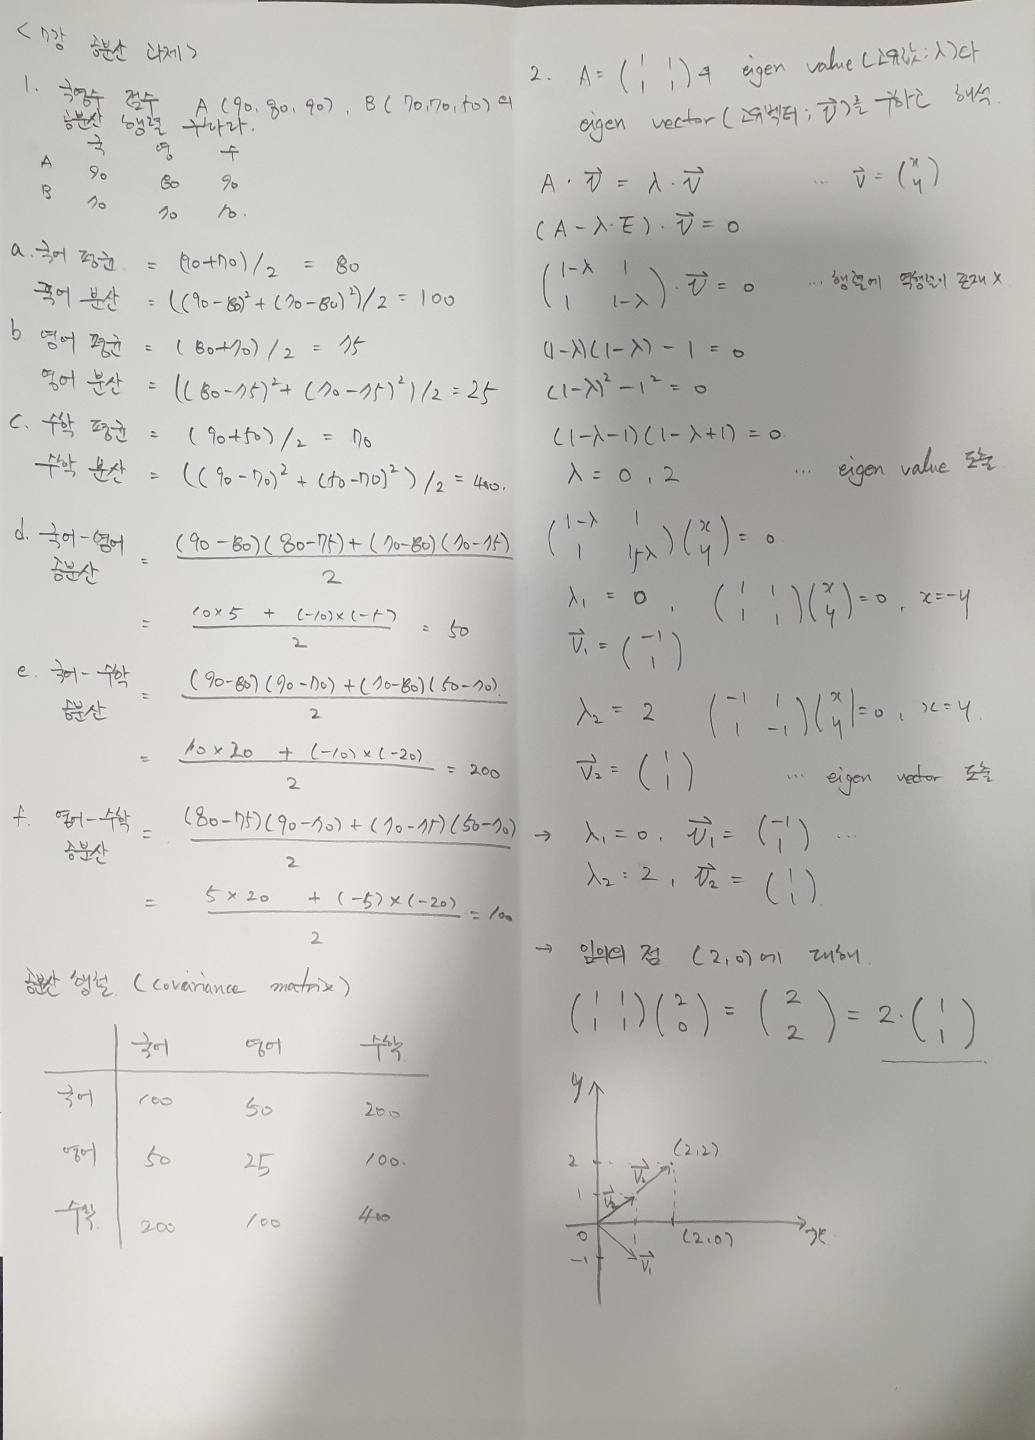 <7강 공분산 과제>
1. 국영수 점수 A(90, 80, 90), B(70, 70, 50)의
공분산 행렬 구하라.
국 영 수
A 90 80 90
B 70 70 50.
a. 국어 평균 = (90+70)/2 = 80
국어 분산 = ((90-80)²+(70-80)²)/2 = 100
b 영어 평균 = (80+70)/2 = 75
영어 분산 = ((80-75)²+(70-75)²)/2 = 25
c. 수학 평균 = (90+50)/2 = 70
수학 분산 = ((90-70)²+(50-70)²)/2 = 400.
d. 국어-영어 공분산 = (90-80)(80-75)+(70-80)(70-75) / 2
= 10×5 + (-10)×(-5) / 2 = 50
e. 국어-수학 공분산 = (90-80)(90-70)+(70-80)(50-70) / 2
= 10×20 + (-10)×(-20) / 2 = 200
f. 영어-수학 공분산 = (80-75)(90-70)+(70-75)(50-70) / 2
= 5×20 + (-5)×(-20) / 2 = 100
공분산 행렬. (covariance matrix)
국어 영어 수학
국어 100 50 200
영어 50 25 100.
수학 200 100 400
2. A = (1 1; 1 1)의 eigen value (고유값; λ)과
eigen vector (고유벡터; v⃗)를 구하고 해석.
A·v⃗ = λ·v⃗ ... v⃗ = (x; y)
(A-λ·E)·v⃗ = 0
(1-λ 1; 1 1-λ)·v⃗ = 0 ... 행렬에 역행렬이 존재 X
(1-λ)(1-λ) - 1 = 0
(1-λ)² - 1² = 0
(1-λ-1)(1-λ+1) = 0.
λ = 0, 2 ... eigen value 도출
(1-λ 1; 1 1-λ)(x; y) = 0
λ₁ = 0, (1 1; 1 1)(x; y) = 0, x=-y
v⃗₁ = (-1; 1)
λ₂ = 2 (-1 1; 1 -1)(x; y) = 0, x=y.
v⃗₂ = (1; 1) ... eigen vector 도출
→ λ₁ = 0, v⃗₁ = (-1; 1) ...
λ₂ = 2, v⃗₂ = (1; 1)
→ 임의의 점 (2,0)에 대해.
(1 1; 1 1)(2; 0) = (2; 2) = 2·(1; 1)
y
2 v⃗₂ (2,2)
1 v⃗₂
0 1 (2,0) x
-1 v⃗₁